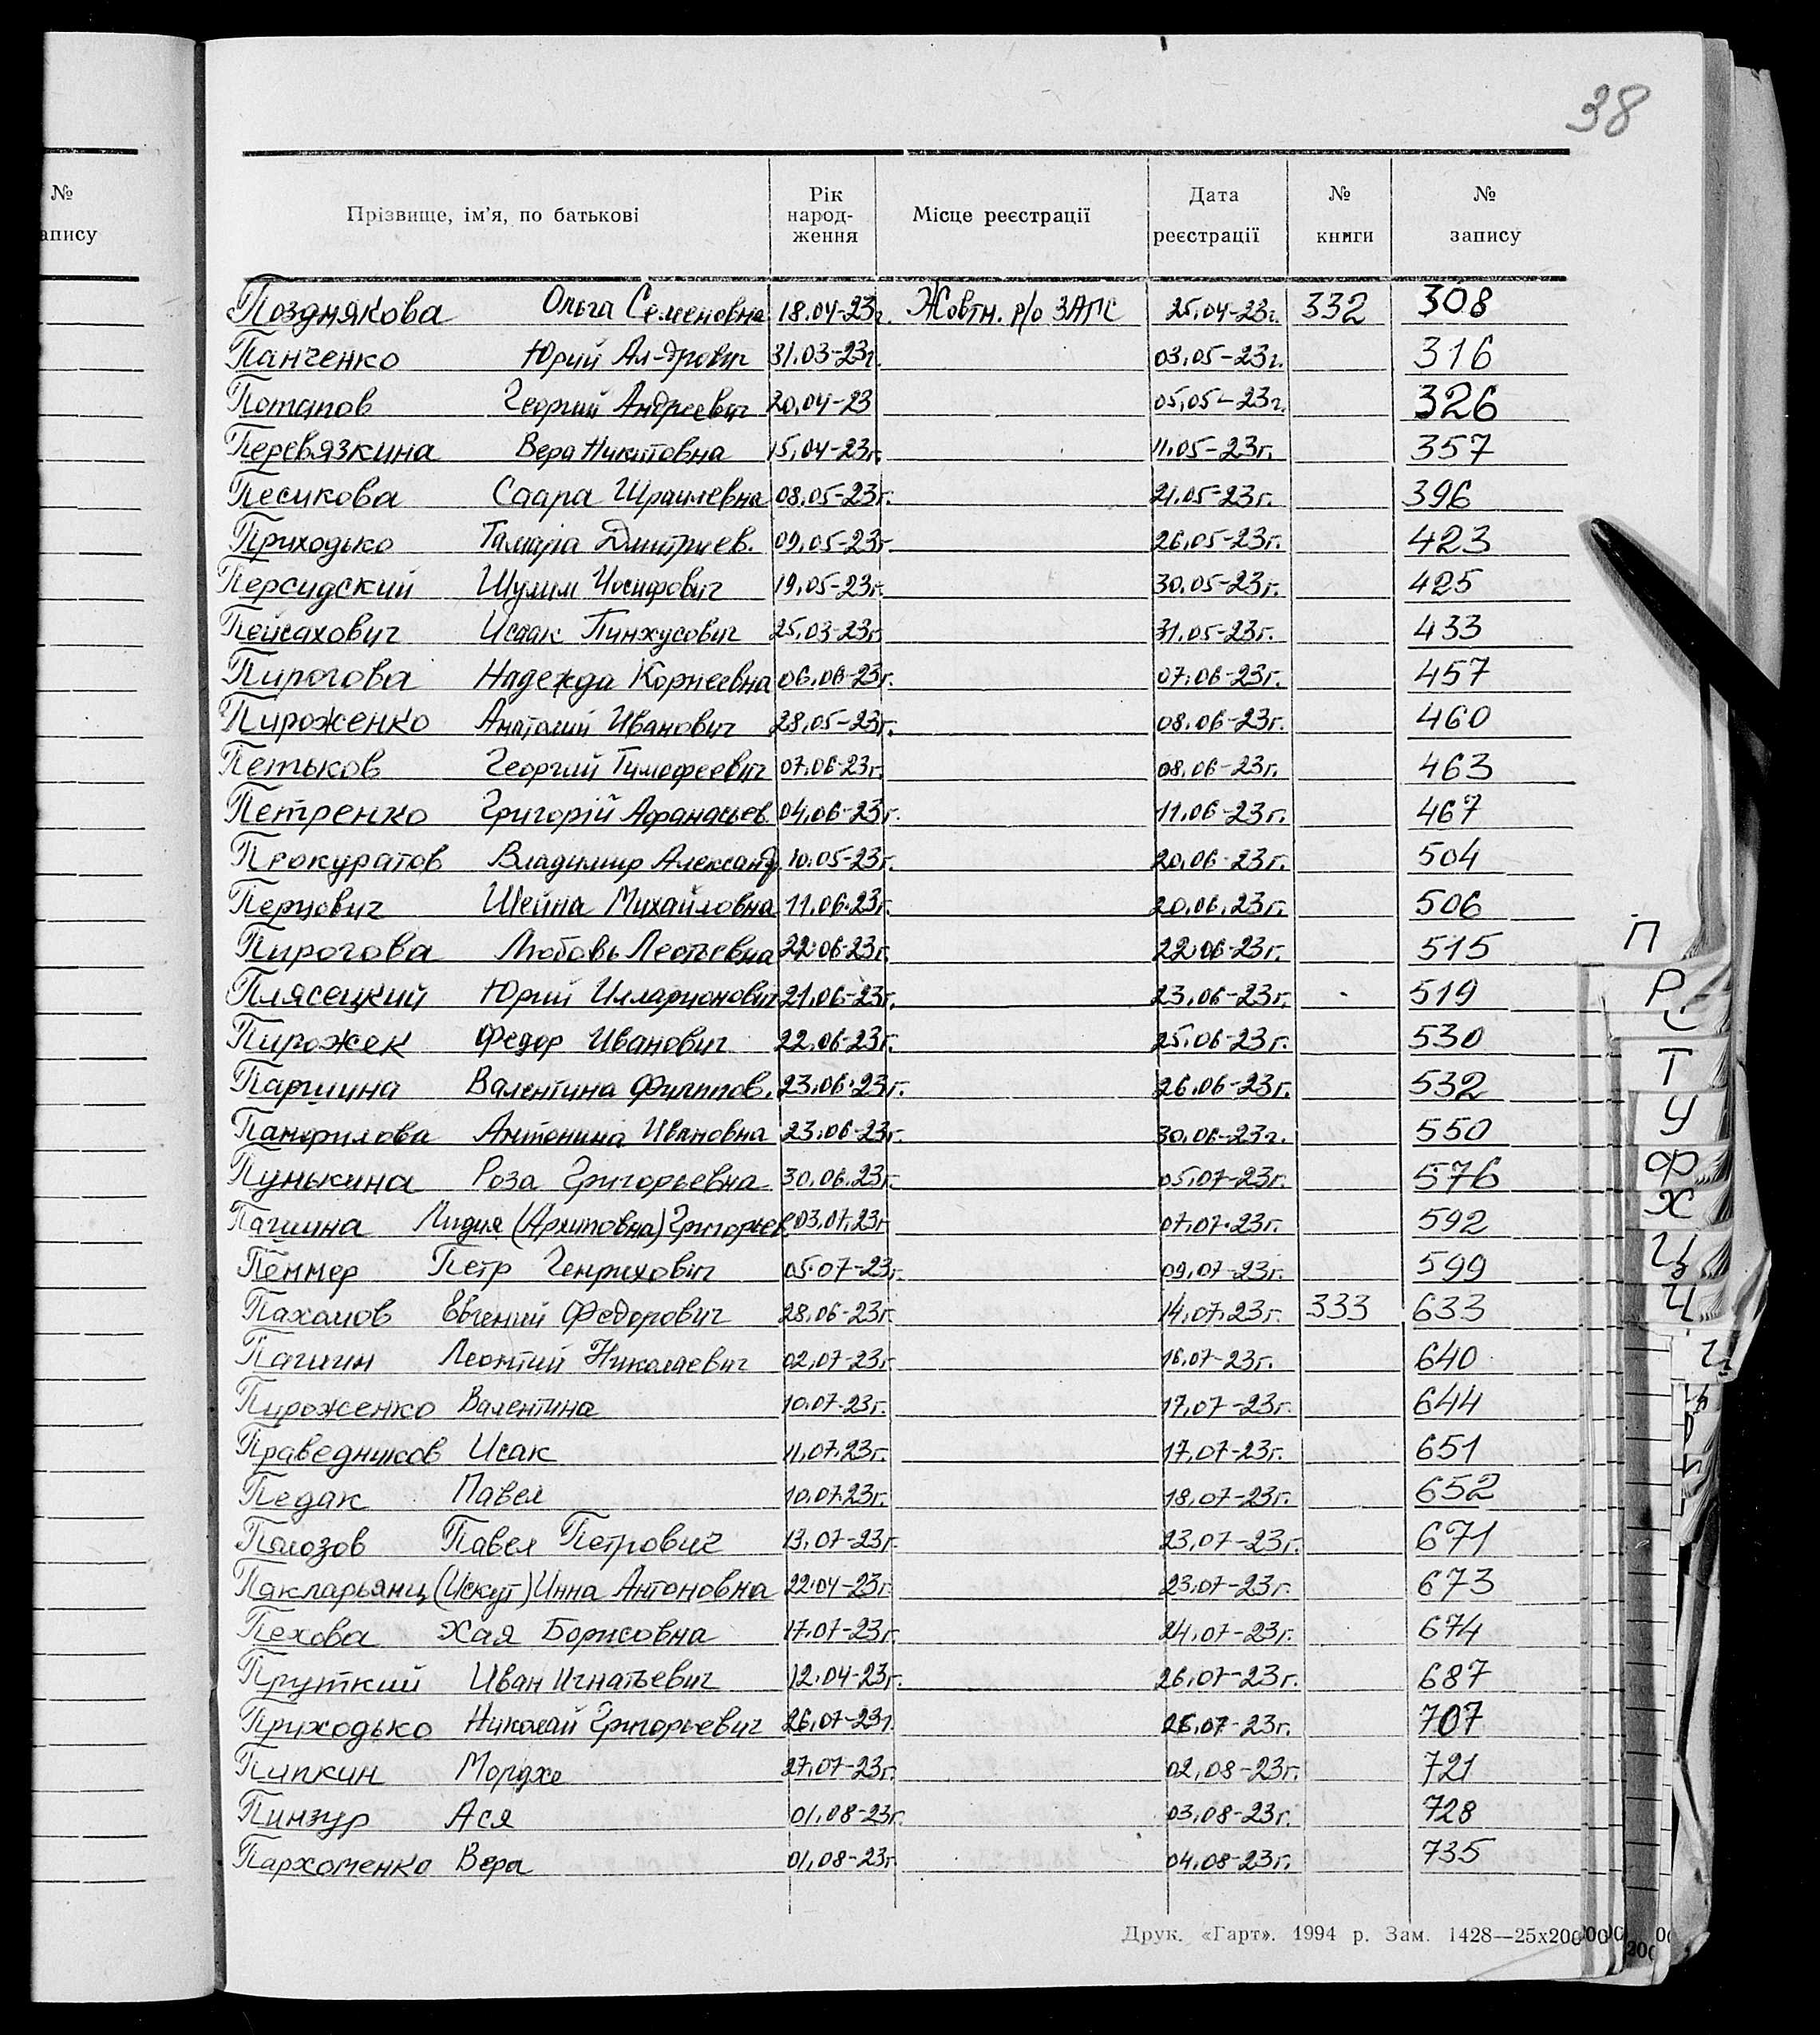 38
№
апису
Прізвище, ім'я, по батькові Рік народ-ження Місце реєстрації Дата реєстрації № книги № запису
Позднякова Ольга Семеновна 18.04-23г. Жовтн. р/о ЗАГС 25.04-23г. 332 308
Панченко Юрий Ал-дрович 31.03-23г. 03.05-23г. 316
Потапов Георгий Андреевич 20.04-23 05.05-23г. 326
Перевязкина Вера Никитовна 15.04-23г. 11.05-23г. 357
Песикова Саара Шраилевна 08.05-23г. 21.05-23г. 396
Приходько Тамара Дмитриев. 09.05-23г 26.05-23г. 423
Персидский Шулим Иосифович 19.05-23г. 30.05-23г. 425
Пейсахович Исаак Пинхусович 25.03-23г 31.05-23г. 433
Пирогова Надежда Корнеевна 06.06-23г. 07.06-23г. 457
Пироженко Анатолий Иванович 28.05-23г. 08.06-23г. 460
Петьков Георгий Тимофеевич 07.06-23г. 08.06-23г. 463
Петренко Григорій Афанасьев. 04.06-23г. 11.06-23г. 467
Прокуратов Владимир Александ. 10.05-23г. 20.06-23г. 504
Перцович Шейна Михайловна 11.06.23г. 20.06.23г. 506
Пирогова Любовь 22.06-23г. 22.06-23г. 515
Плясецкий Юрий Илларионович 21.06-23г. 23.06-23г. 519
Пирожек Федор Иванович 22.06-23г. 25.06-23г. 530
Паршина Валентина Филиппов. 23.06.23г. 26.06-23г. 532
Панфилова Антонина Ивановна 23.06-23г. 30.06-23г. 550
Пунькина Роза Григорьевна 30.06.23г 05.07-23г. 576
Пашина Лидия (Архиповна) Григорьев 03.07.23г 07.07.23г. 592
Пеннер Петр Генрихович 05.07-23г. 09.07-23г. 599
Пахомов Евгений Федорович 28.06-23г. 14.07.23г. 333 633
Пашин Леонтий Николаевич 02.07-23г 16.07-23г. 640
Пироженко Валентина 10.07-23г. 17.07-23г. 644
Праведников Исак 11.07.23г. 17.07-23г. 651
Педак Павел 10.07.23г. 18.07-23г. 652
Полозов Павел Петрович 13.07-23г. 23.07-23г. 671
Пакларьянц (Искут) Инна Антоновна 22.04-23г. 23.07-23г. 673
Пехова Хая Борисовна 17.07-23г. 24.07-23г. 674
Пруткий Иван Игнатьевич 12.04-23г. 26.07-23г. 687
Приходько Николай Григорьевич 26.07-23г 26.07-23г. 707
Пипкин Мордхе 27.07-23г. 02.08-23г. 721
Пинзур Ася 01.08-23г. 03.08-23г. 728
Пархоменко Вера 01.08-23г. 04.08-23г. 735
П
Р
С
Т
У
Ф
Х
Ц
Ч
Друк. «Гарт». 1994 р. Зам. 1428—25х200